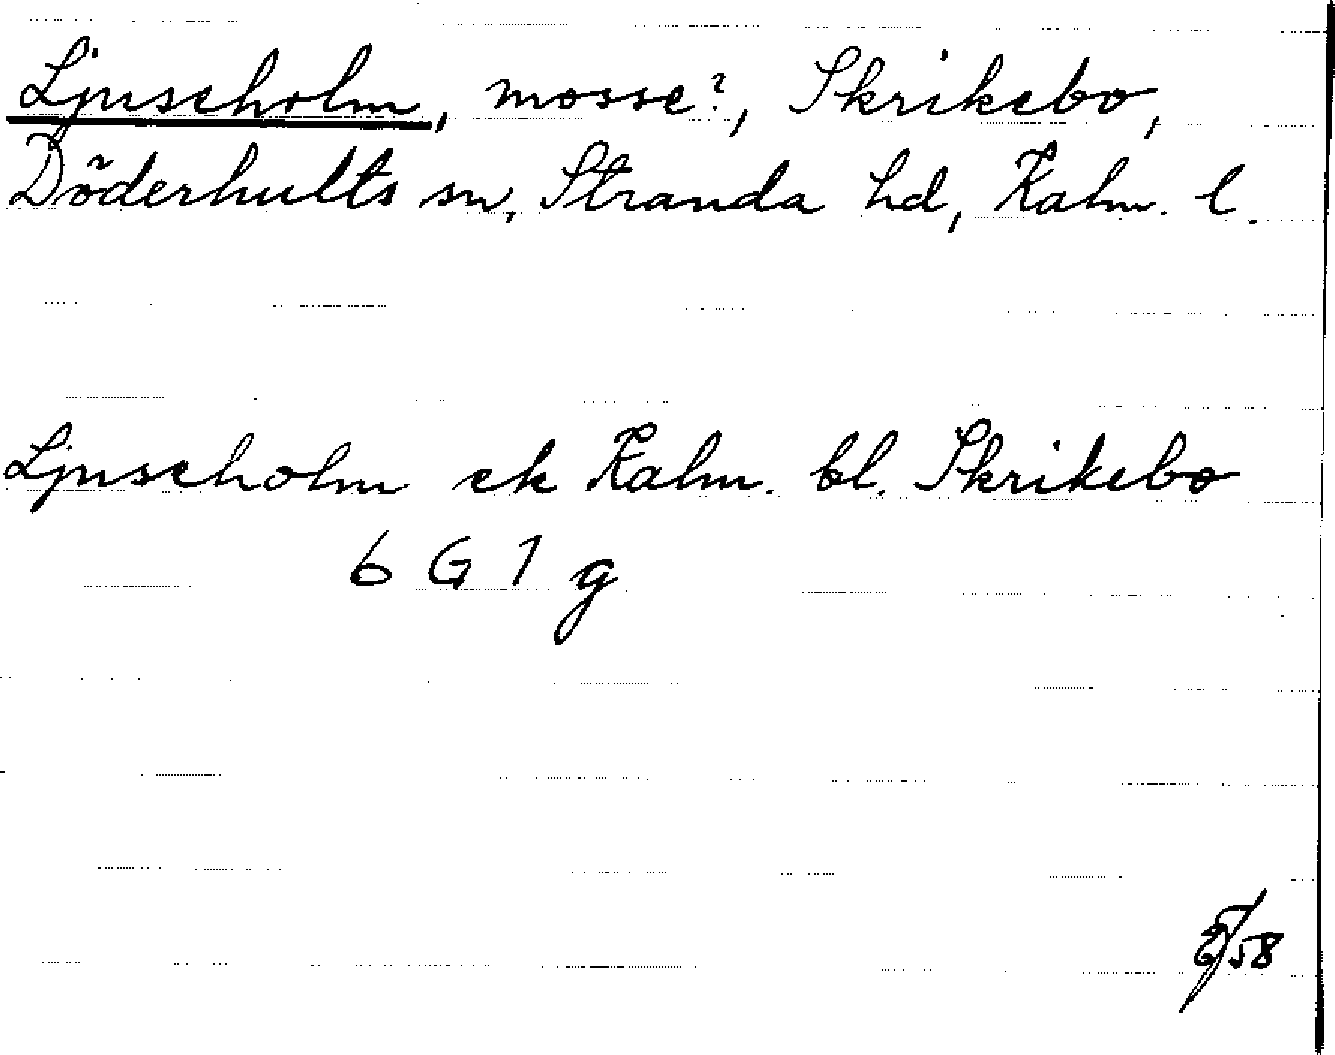 Ljuseholm, mosse?, Skrikebo,
Döderhults sn, Stranda hd, Kalm. l.
Ljuseholm ek Kalm. bl. Skrikebo
6 G 1 g